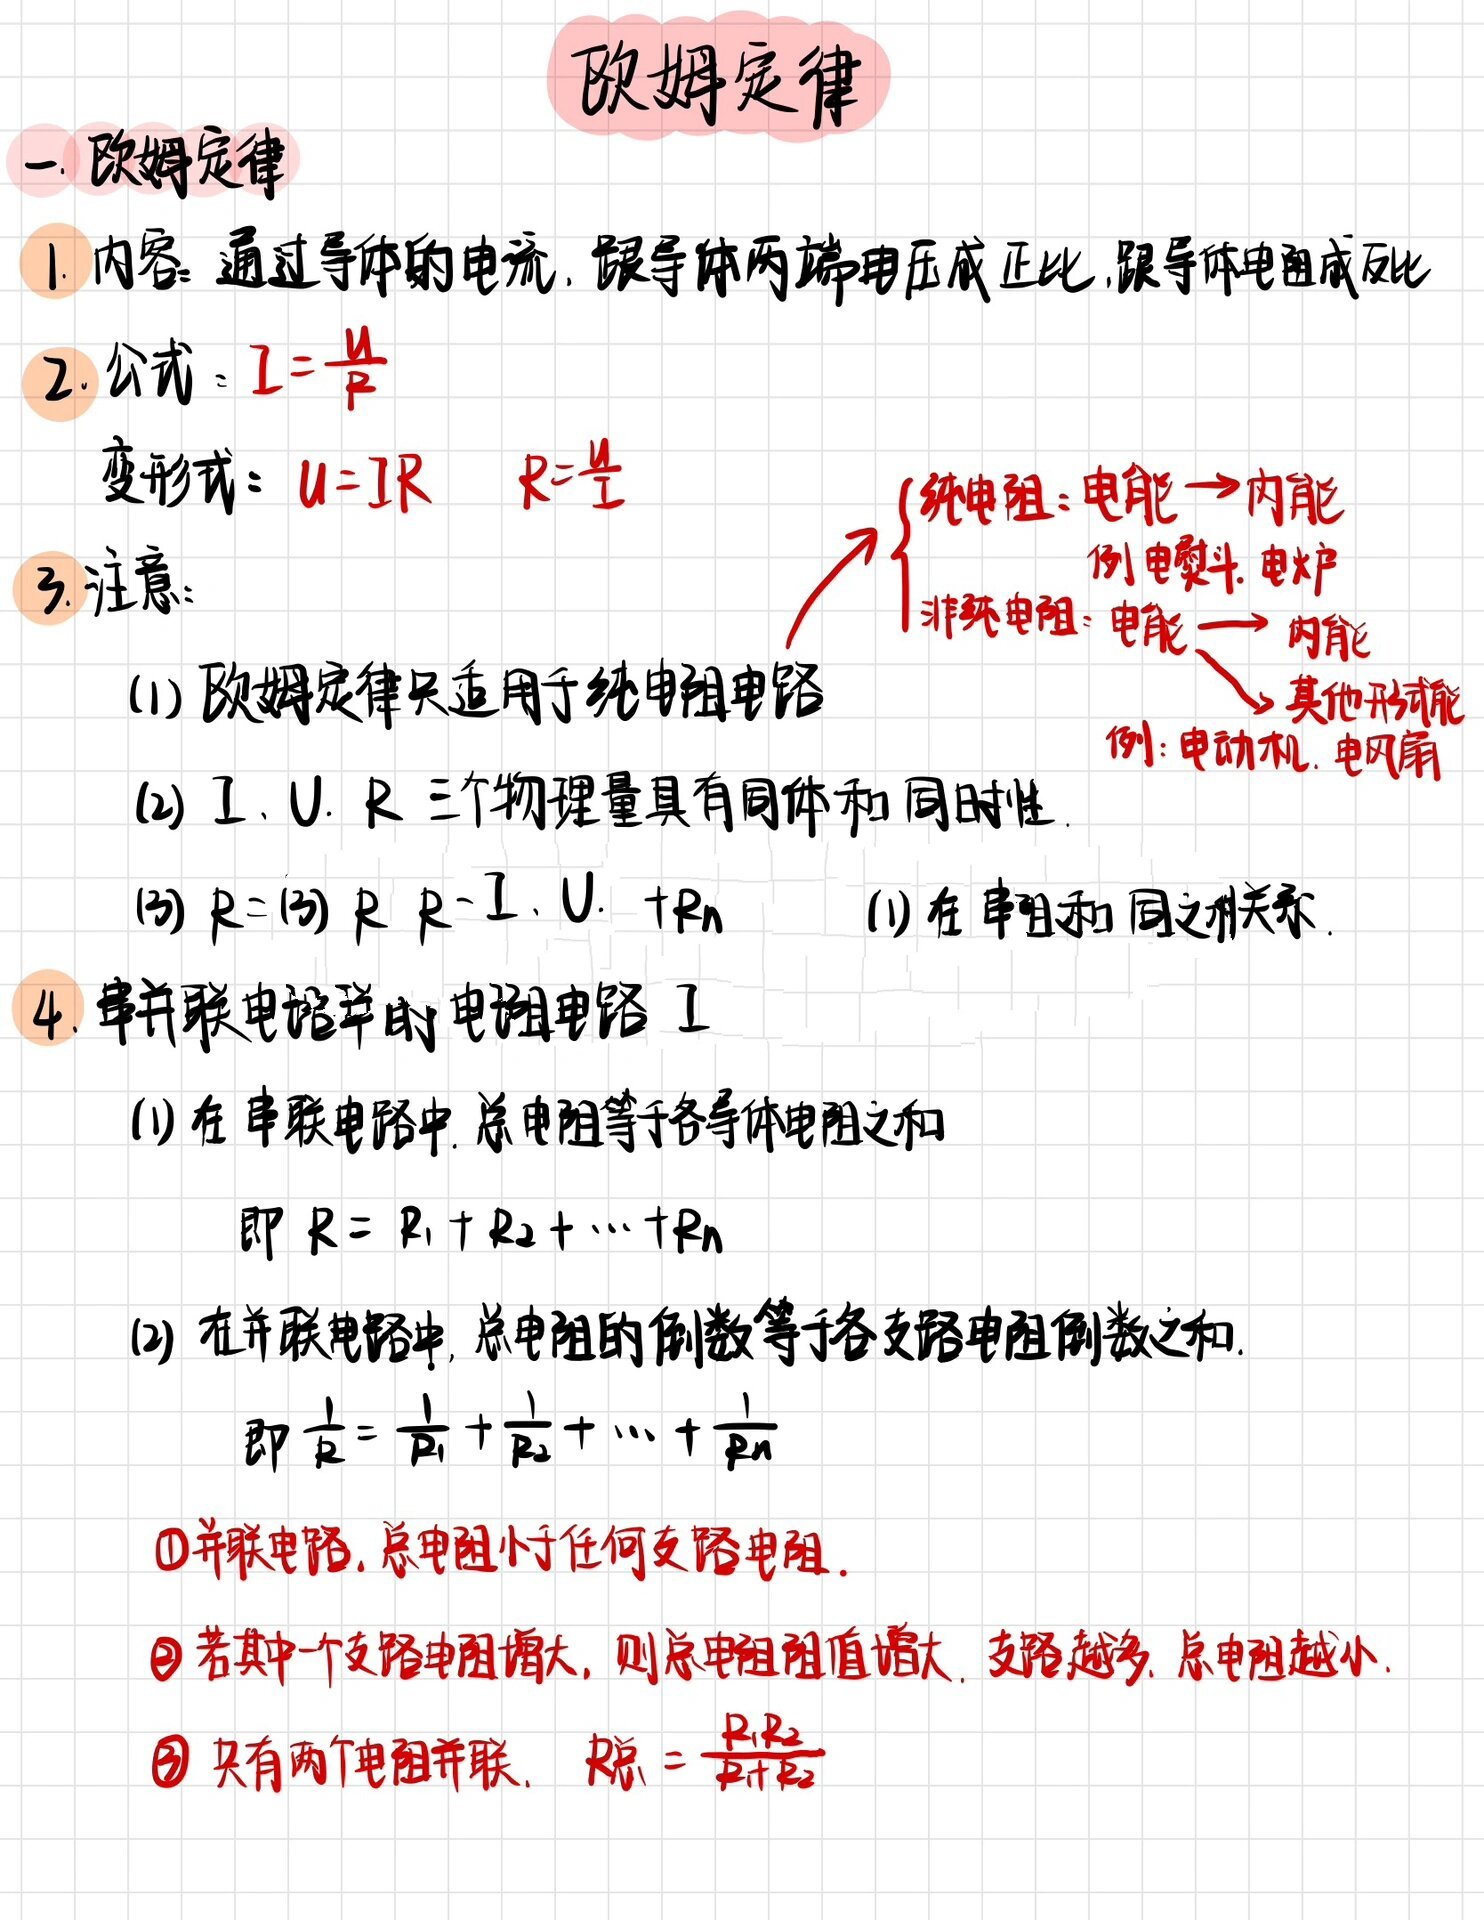 欧姆定律
一. 欧姆定律
1. 内容: 通过导体的电流, 跟导体两端电压成正比, 跟导体电阻成反比
2. 公式: I=U/R
变形式: U=IR R=U/I
3. 注意:
纯电阻: 电能→内能
例 电熨斗. 电炉
非纯电阻: 电能→内能
↘其他形式能
例: 电动机. 电风扇
(1) 欧姆定律只适用于纯电阻电路
(2) I、U. R 三个物理量具有同体和同时性.
(3) R=(3) R R-I、U. +Rn (1) 在串阻和同之相关系.
4. 串并联电路 时 电阻电路 I
(1) 在串联电路中. 总电阻等于各导体电阻之和
即 R = R₁ + R₂ + … + Rn
(2) 在并联电路中, 总电阻的倒数等于各支路电阻倒数之和.
即 1/R = 1/R₁ + 1/R₂ + … + 1/Rn
①并联电路. 总电阻小于任何支路电阻.
② 若其中一个支路电阻增大, 则总电阻阻值增大. 支路越多. 总电阻越小.
③ 只有两个电阻并联. R总 = R₁R₂/R₁+R₂